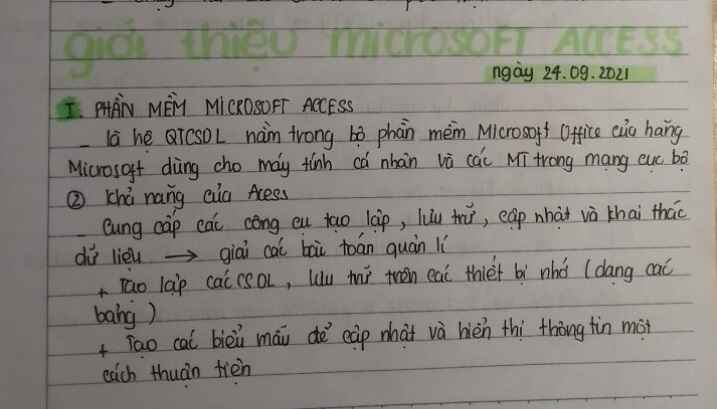 giới thiệu microsoft Access
ngày 24.09.2021
I. PHẦN MỀM MICROSOFT ACCESS
_ là hệ QTCSDL nằm trong bộ phần mềm Microsoft Office của hãng
Microsoft dùng cho máy tính cá nhân và các MT trong mạng cục bộ
② khả năng của Acess
_ Cung cấp các công cụ tạo lập, lưu trữ, cập nhật và khai thác
dữ liệu → giải các bài toán quản lí
+ Tạo lập các CSDL, lưu trữ trên các thiết bị nhớ (dạng các
bảng)
+ Tạo các biểu mẫu để cập nhật và hiển thị thông tin một
cách thuận tiện